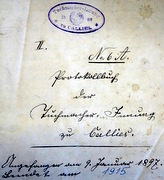 zu CALLIES.
II.
No. 6 A.
Protokollbuch
der
Tuchmacher-Innung
zu Callies.
Angefangen am 9. Januar 1897.
Beendet am 1915